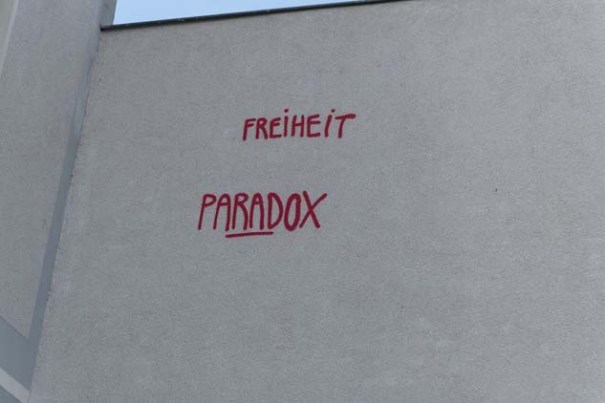 FREiHEiT
PARADOX